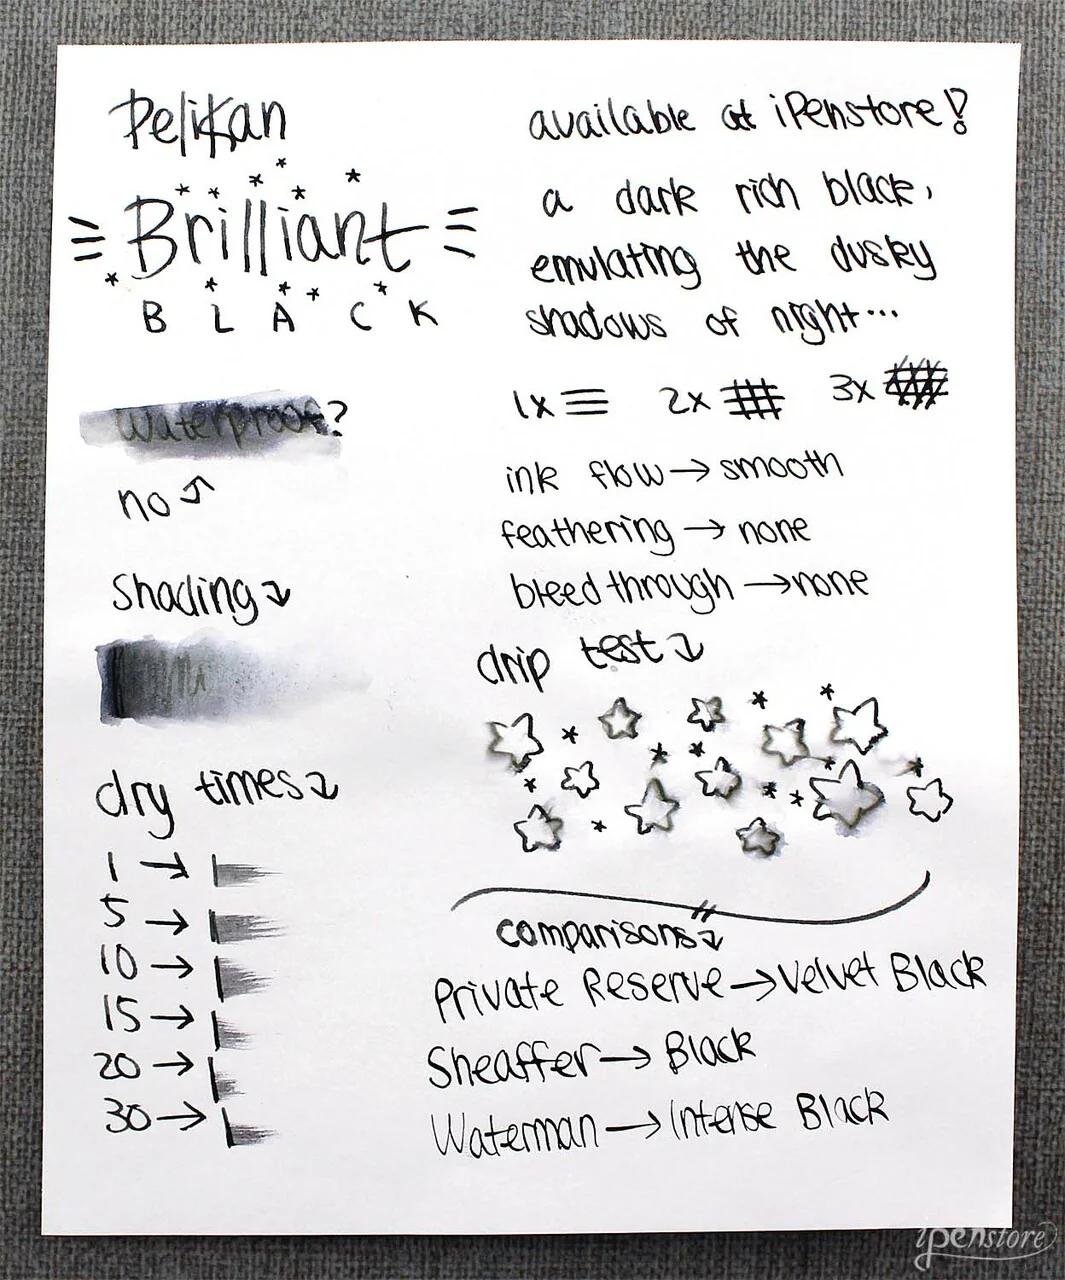 Pelikan
Brilliant
BLACK
available at iPenstore!?
a dark rich black,
emulating the dusky
shadows of night...
1x 2x 3x
Waterproof?
no
ink flow → smooth
feathering → none
bleedthrough → none
Shading
drip test
dry times
1 →
5 →
10 →
15 →
20 →
30 →
comparisons
Private Reserve → Velvet Black
Sheaffer → Black
Waterman → Intense Black
ipenstore